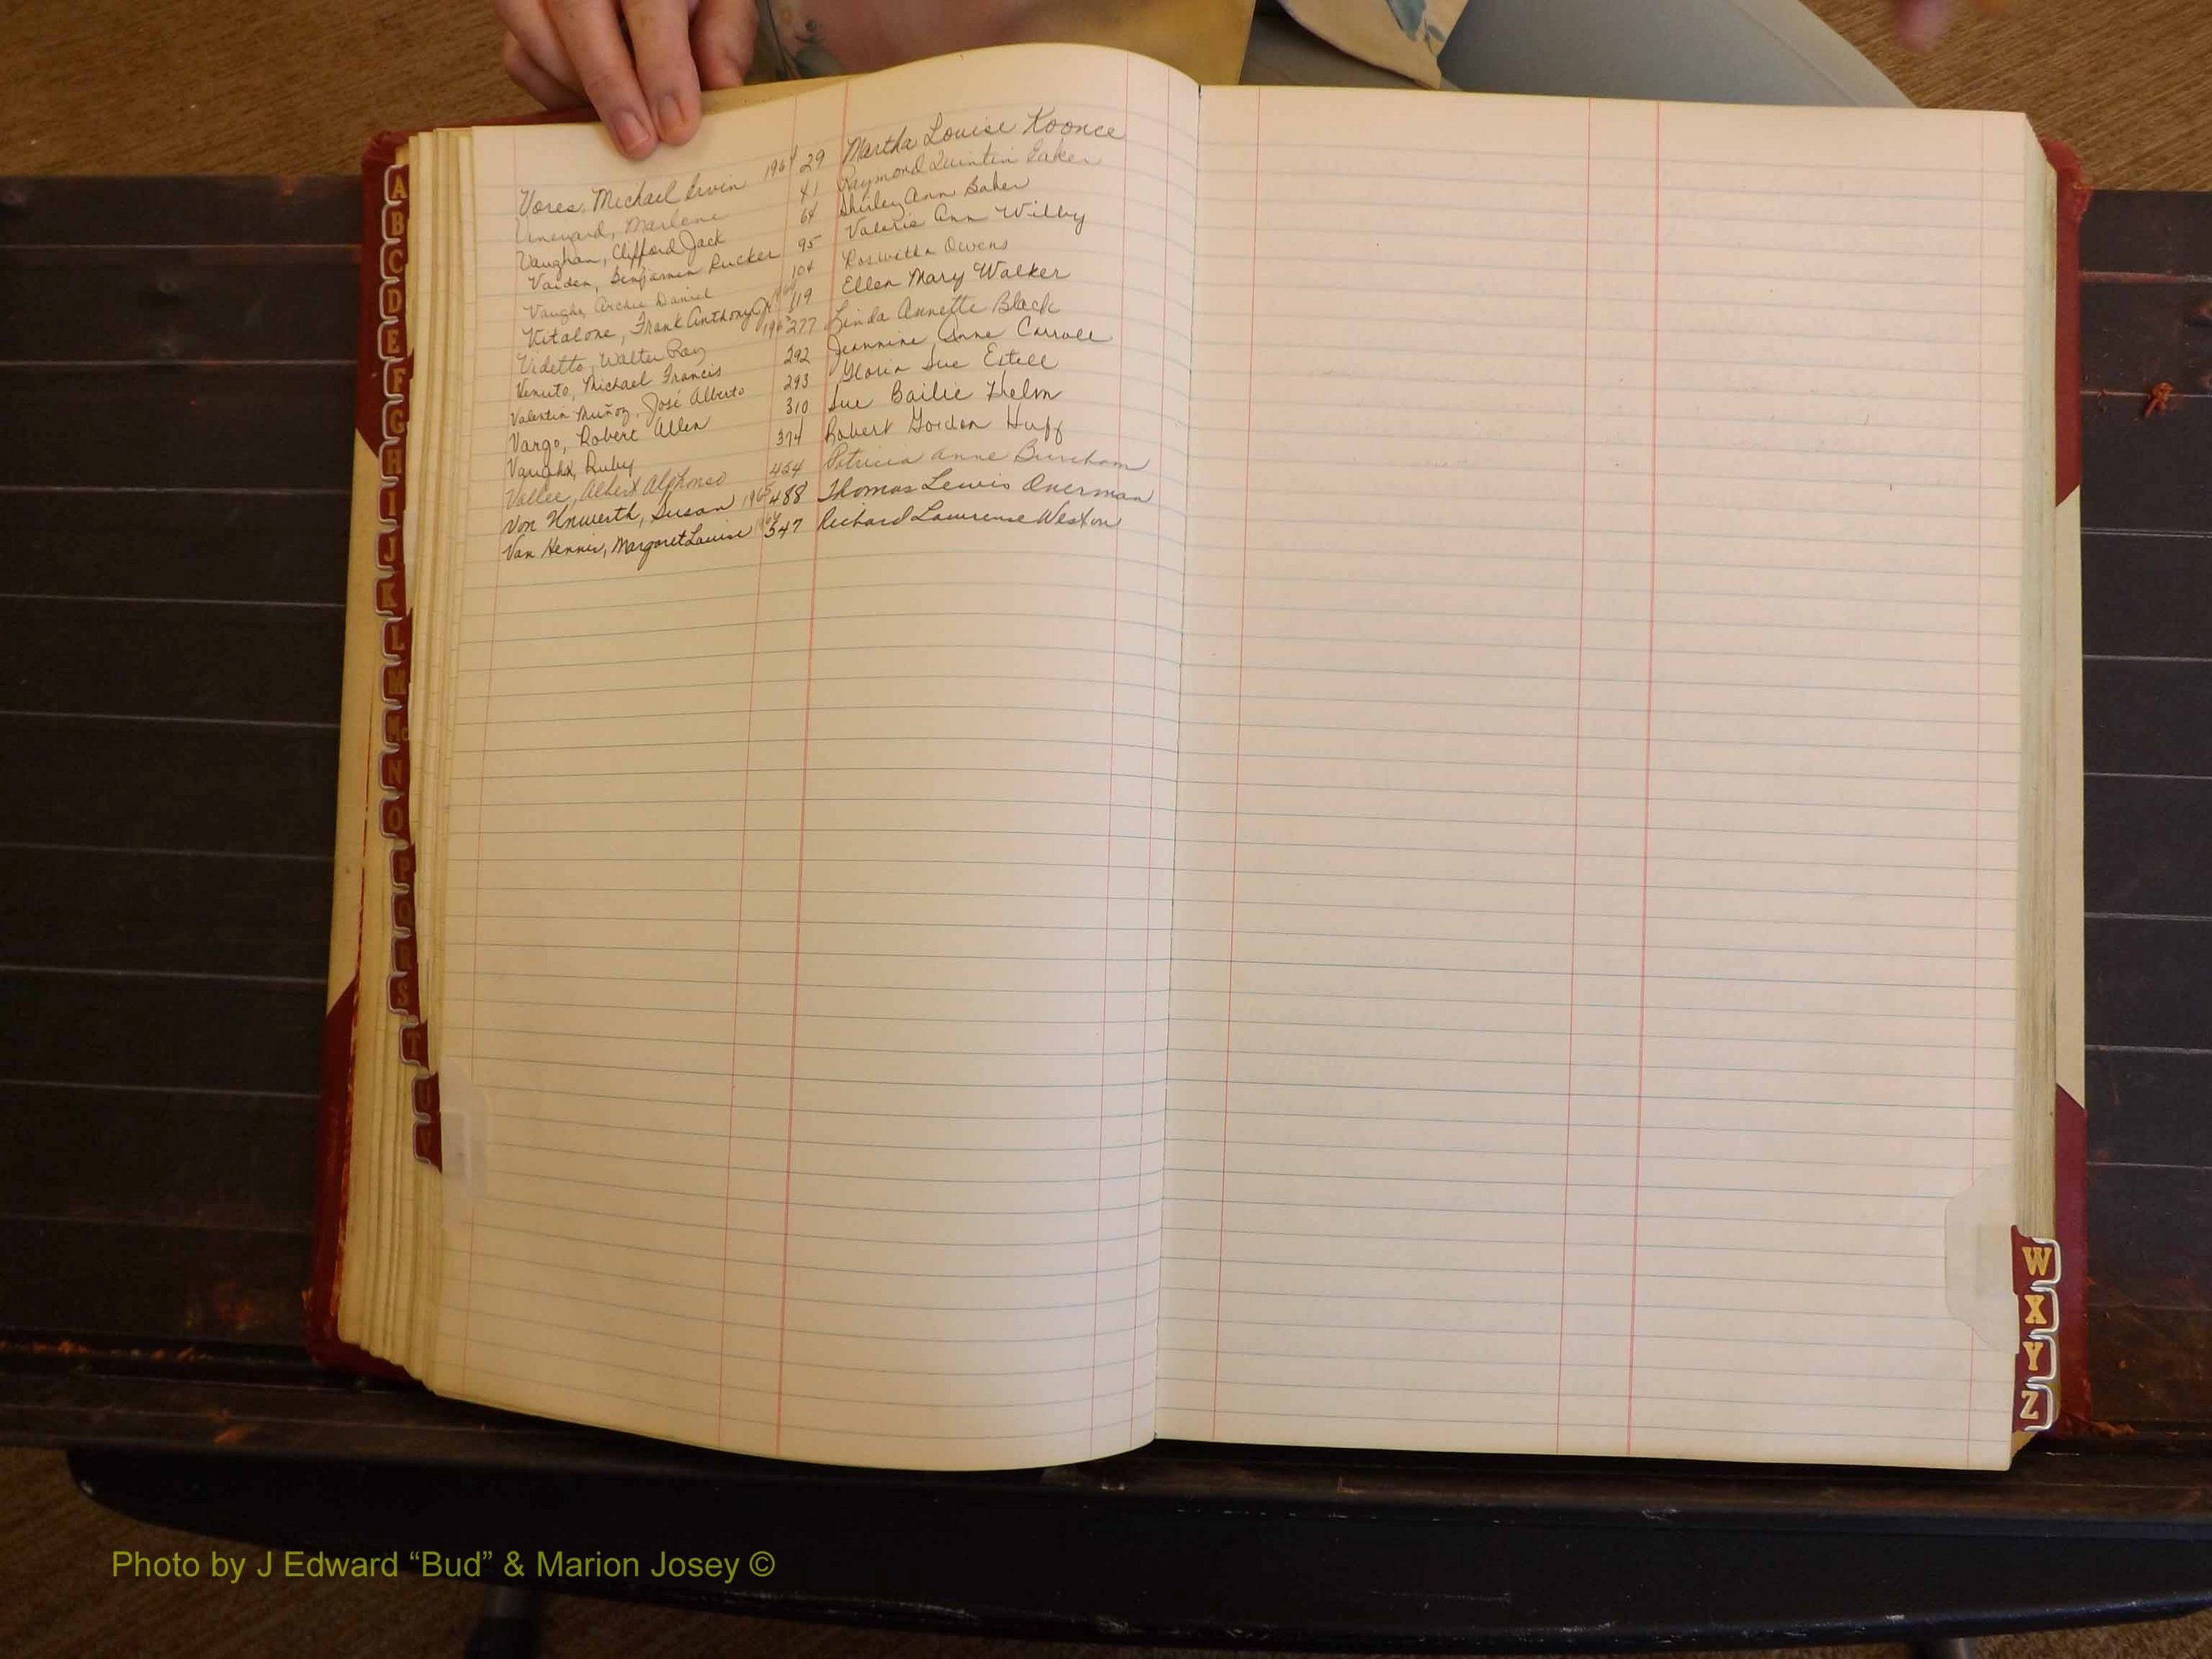 Vores, Michael Irvin 1964 29 Martha Louise Koonce
Vineyard, Marlene 41 Raymond Quintin Eaker
Vaughan, Clifford Jack 64 Shirley Ann Baker
Vaiden, Benjamin Rucker 95 Valerie Ann Willby
Vaughn, Archie Daniel 104 Roswitha Owens
Vitalone, Frank Anthony Jr 119 Ellen Mary Walker
Videtto, Walter Ray 277 Linda Annette Black
Venuto, Michael Francis 292 Jeannine Anne Carroll
Valentin Muñoz, José Alberto 293 Gloria Sue Estell
Vargo, Robert Allen 310 Sue Bailie Helm
Vaughn, Ruby 374 Robert Gordon Huff
Vallee, Albert Alphonso 454 Patricia Anne Burcham
Von Unwerth, Susan 1965 488 Thomas Lewis Overman
Van Hennis, Margaret Louise 547 Richard Lawrence Weston
A
B
C
D
E
F
G
H
I
J
K
L
M
Mc
N
O
P
Q
R
S
T
U
V
W
X
Y
Z
Photo by J Edward “Bud” & Marion Josey ©